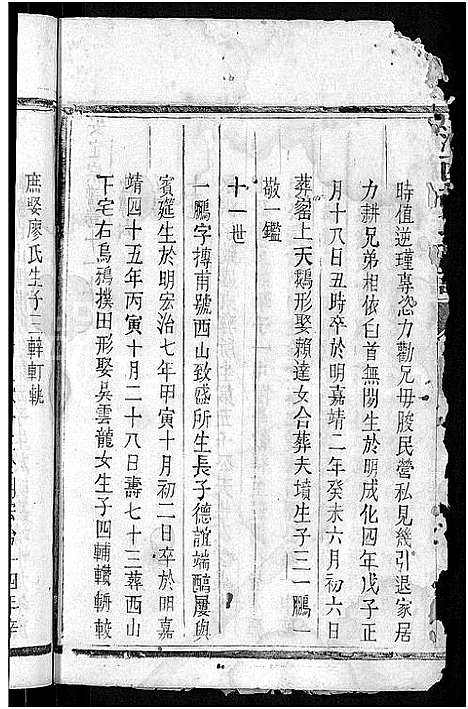 時值逆瑾專恣力勸兄毋朘民營私見幾引退家居
力耕兄弟相依白首無間生於明成化四年戊子正
月十八日丑時卒於明嘉靖二年癸未六月初六日
葬窑上天鵝形娶賴達女合葬夫墳生子三一鵬一
敬一鑑
十一世
一鵬字摶甫號西山致盛所生長子德誼端醕屢與
賓筵生於明宏治七年甲寅十月初二日卒於明嘉
靖四十五年丙寅十月二十八日壽七十三葬西山
下宅右烏鴉撲田形娶吳雲龍女生子四輔轥輧較
庶娶廖氏生子三轌軒軌